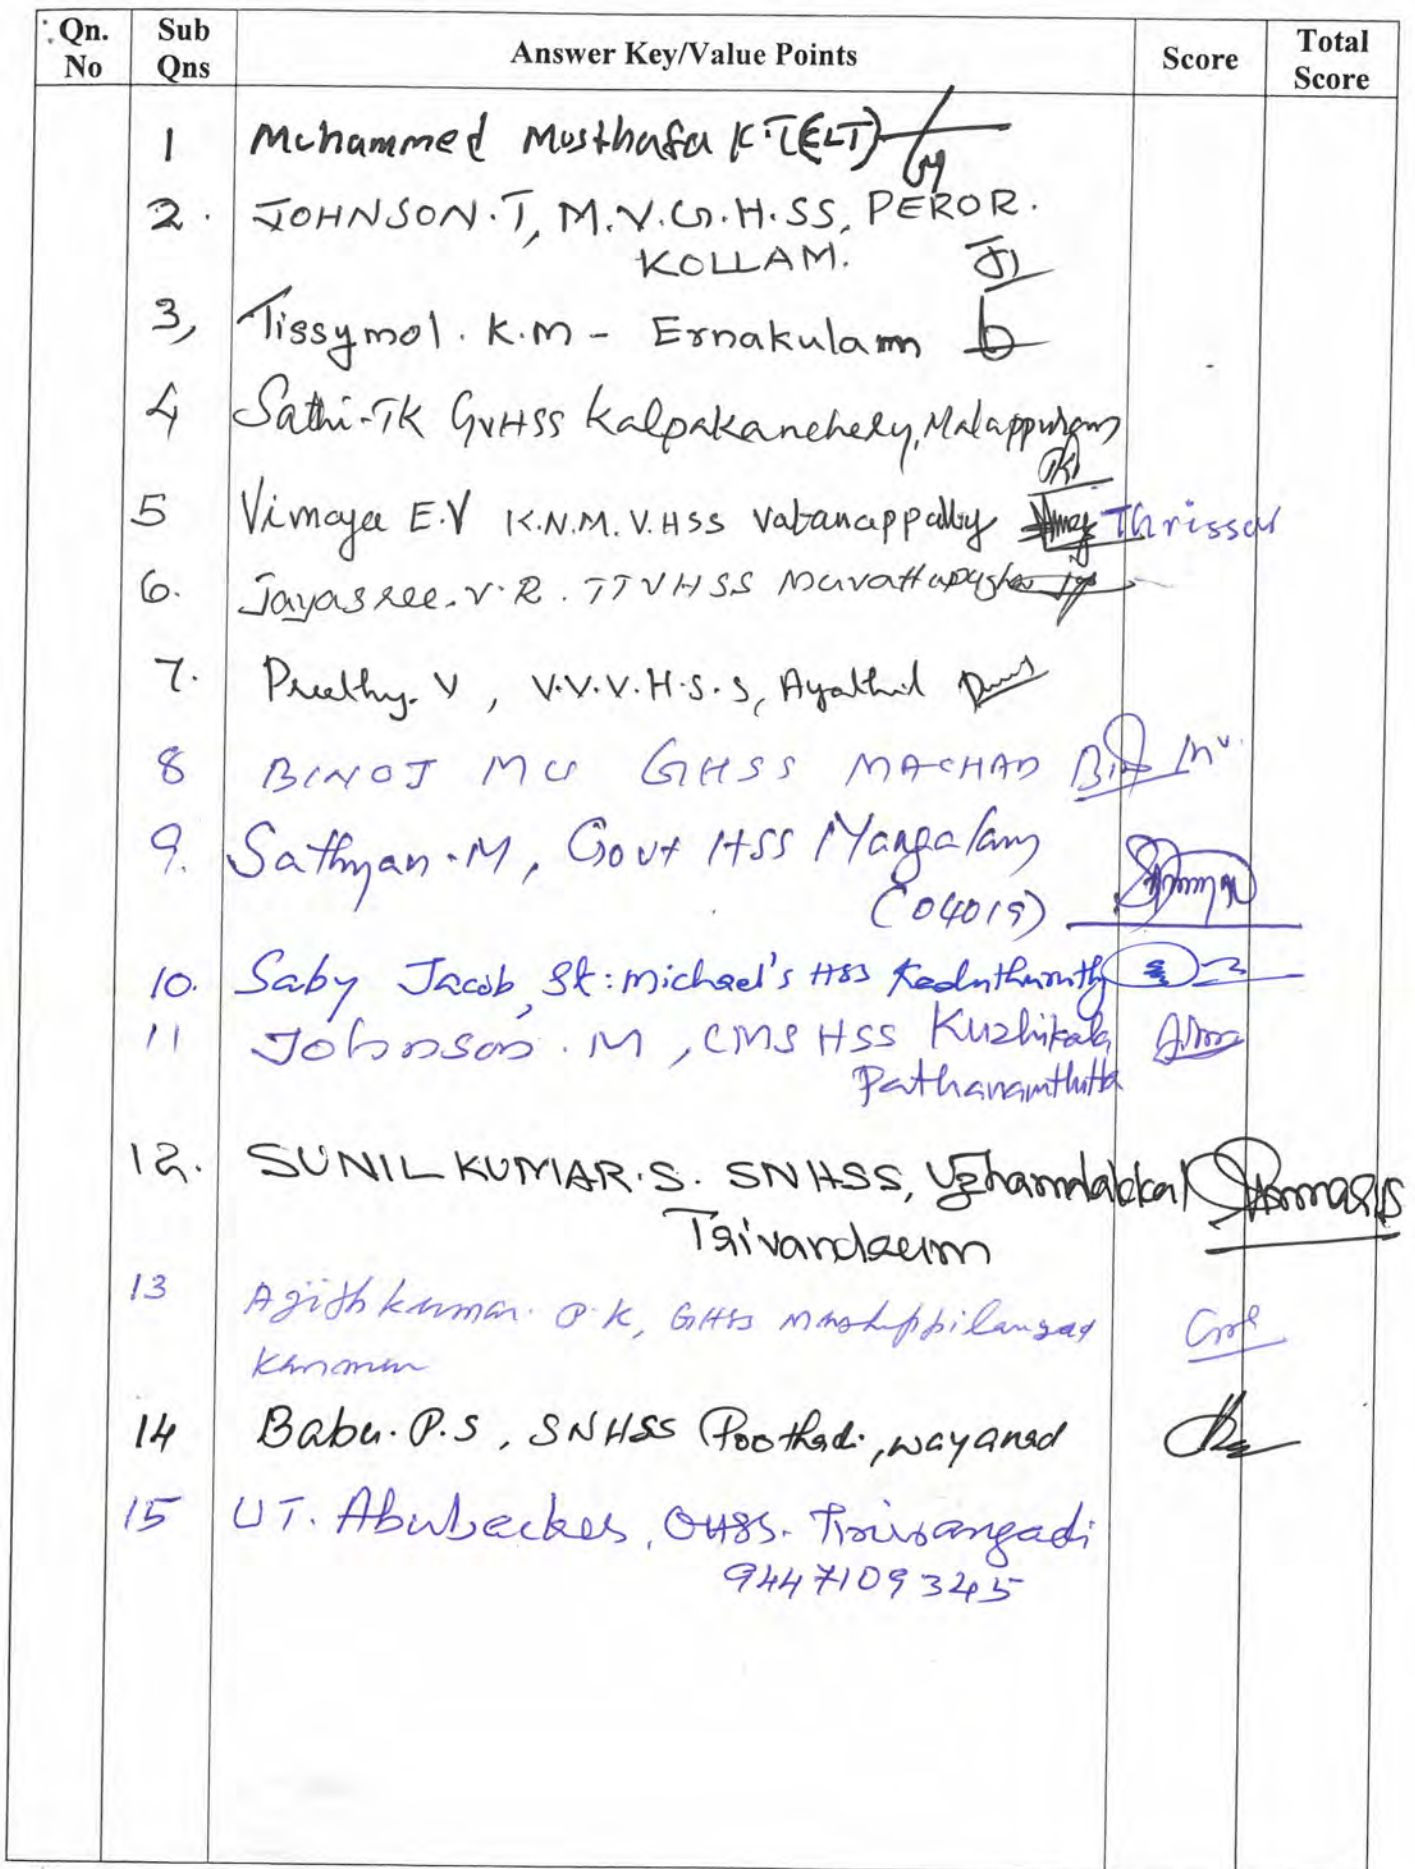 Qn. No Sub Qns Answer Key/Value Points Score Total Score
1 Mohammed Musthafa K.T(ELT)
2. JOHNSON.T, M.V.G.H.SS, PEROR.
KOLLAM.
3, Tissymol. K.M - Ernakulam
4 Sathi-TK GVHSS Kalpakanchery, Malappuram
5 Vimaya E.V K.N.M.V.HSS Vatanappally Thrissur
6. Jayasree.V.R. TTVHSS Muvattupuzha
7. Preethy. V, V.V.V.H.S.S, Ayathil
8 BINOJ MV GHSS MACHAD
9. Sathyan.M, Govt HSS Mangalam
(04019)
10. Saby Jacob, St: Michael's HSS Kaduthuruthy
11 Johnson. M, CMS HSS Kuzhikala
Pathanamthitta
12. SUNILKUMAR.S. SNHSS, Uzhamalakkal
Trivandrum
13 Ajithkumar. P.K, GHSS Muzhappilangad
Kannur
14 Babu. P.S, SNHSS Poothadi, Wayanad
15 UT. Abubacker, OHSS. Tirurangadi
9447109345